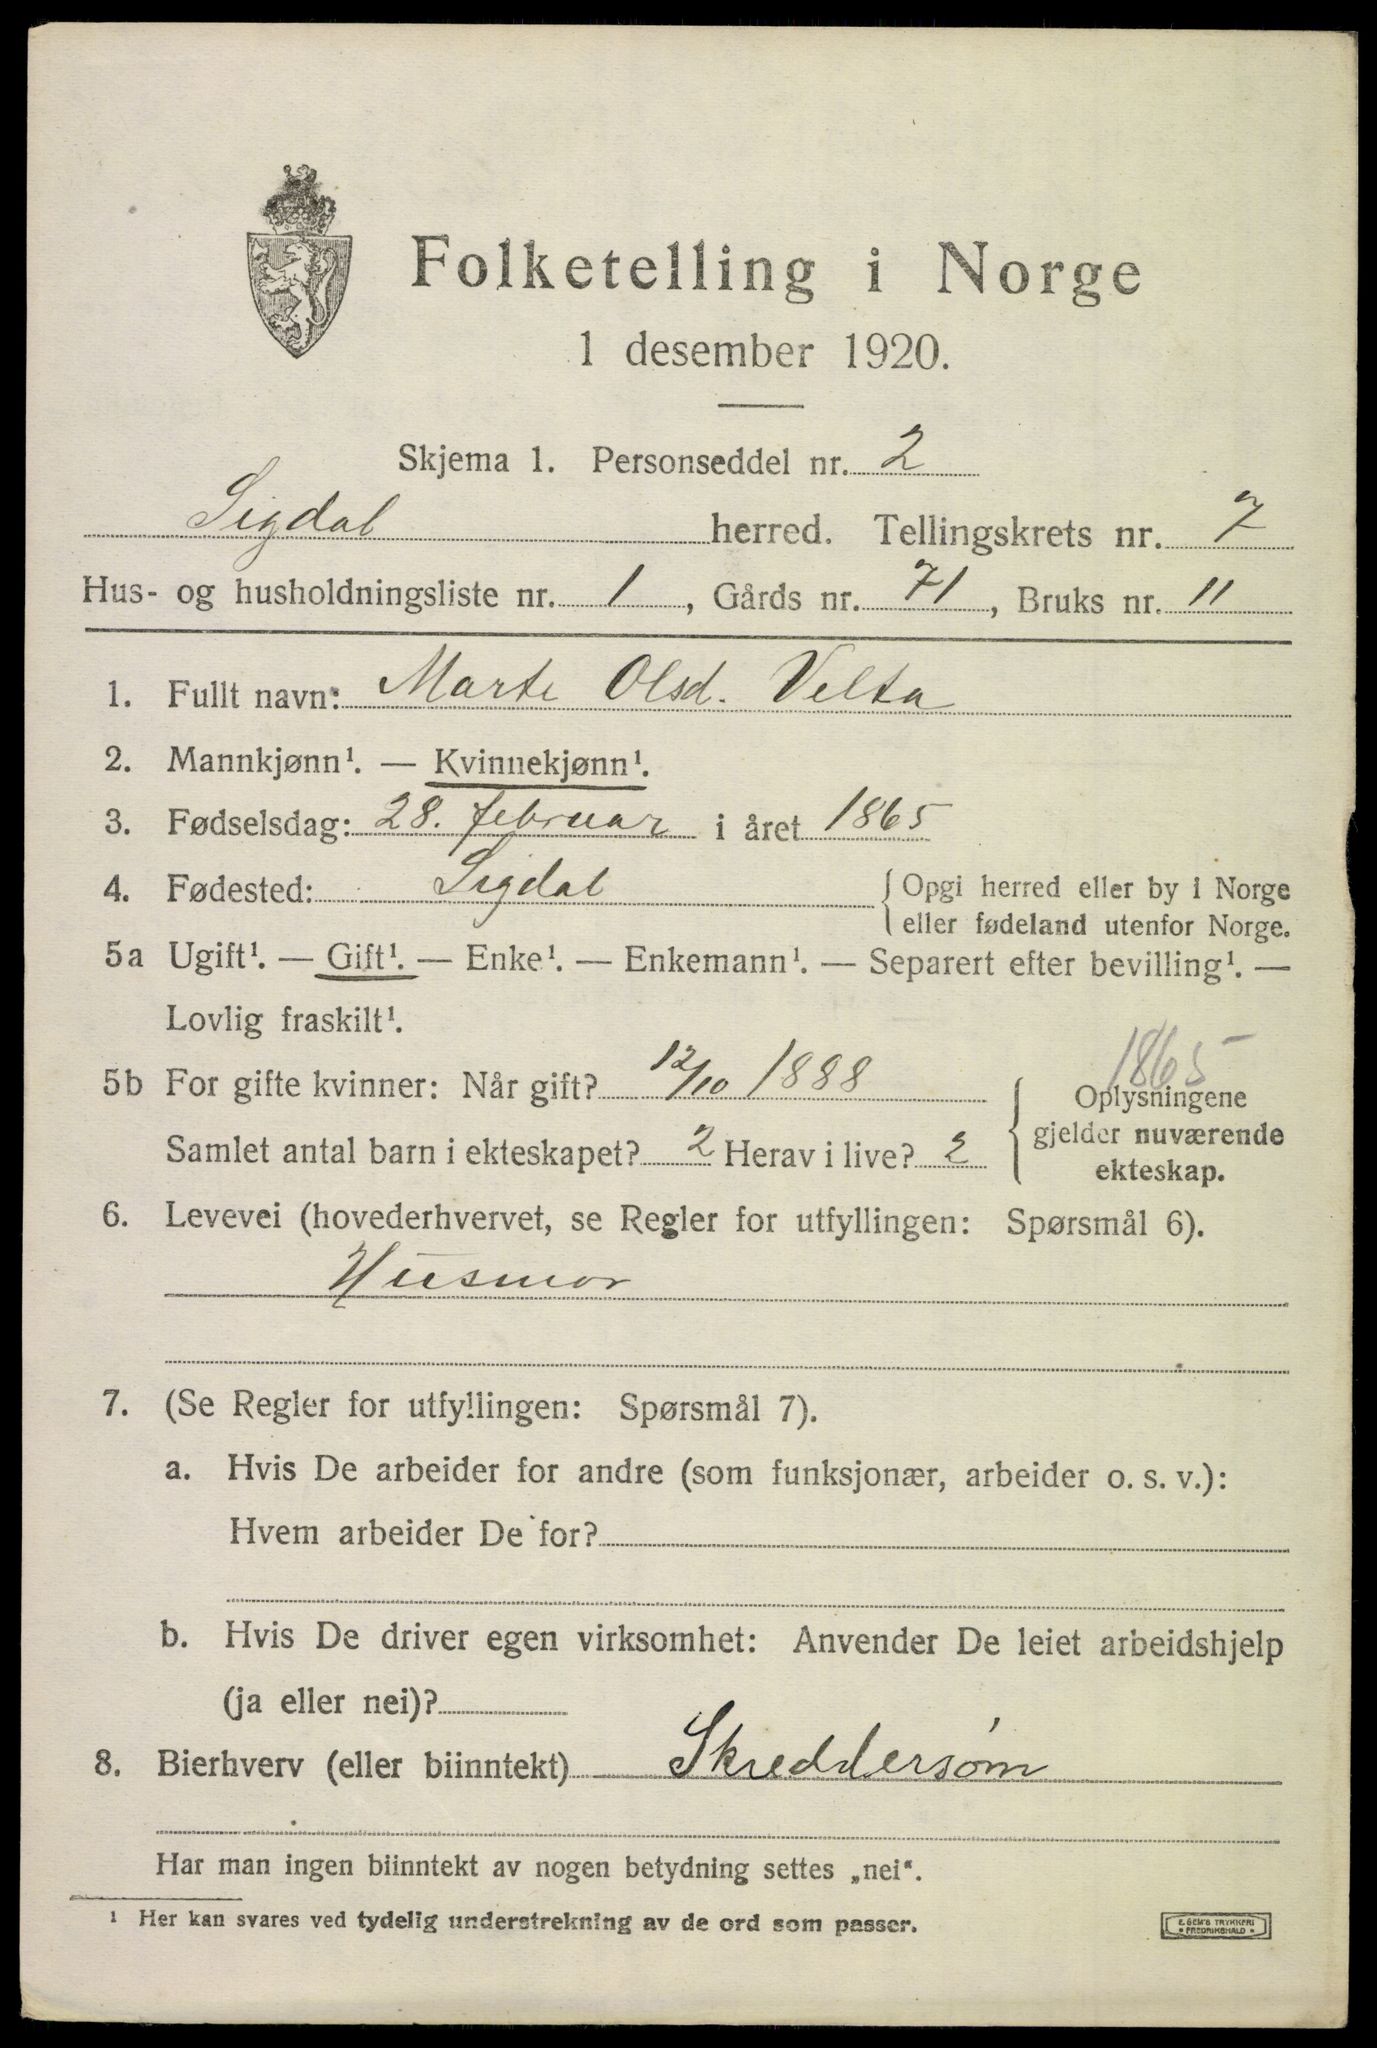 Folketelling i Norge
1 desember 1920.
Skjema 1. Personseddel nr. 2
Sigdal herred. Tellingskrets nr. 7
Hus- og husholdningsliste nr. 1, Gårds nr. 71, Bruks nr. 11
1. Fullt navn: Marte Olsd. Velta
2. Mannkjønn¹. — Kvinnekjønn¹.
3. Fødselsdag: 28. februar i året 1865
4. Fødested: Sigdal { Opgi herred eller by i Norge
eller fødeland utenfor Norge.
5a Ugift¹. — Gift¹. — Enke¹. — Enkemann¹. — Separert efter bevilling¹. —
Lovlig fraskilt¹.
1865
5b For gifte kvinner: Når gift? 12/10 1888 { Oplysningene
gjelder nuværende
Samlet antal barn i ekteskapet? 2 Herav i live? 2
ekteskap.
6. Levevei (hovederhvervet, se Regler for utfyllingen: Spørsmål 6).
Husmor
7. (Se Regler for utfyllingen: Spørsmål 7).
a. Hvis De arbeider for andre (som funksjonær, arbeider o. s. v.):
Hvem arbeider De for?
b. Hvis De driver egen virksomhet: Anvender De leiet arbeidshjelp
(ja eller nei)?
8. Bierhverv (eller biinntekt) Skreddersøm
Har man ingen biinntekt av nogen betydning settes „nei“.
¹ Her kan svares ved tydelig understrekning av de ord som passer.
E. SEM'S TRYKKERI
• FREDRIKSHALD •